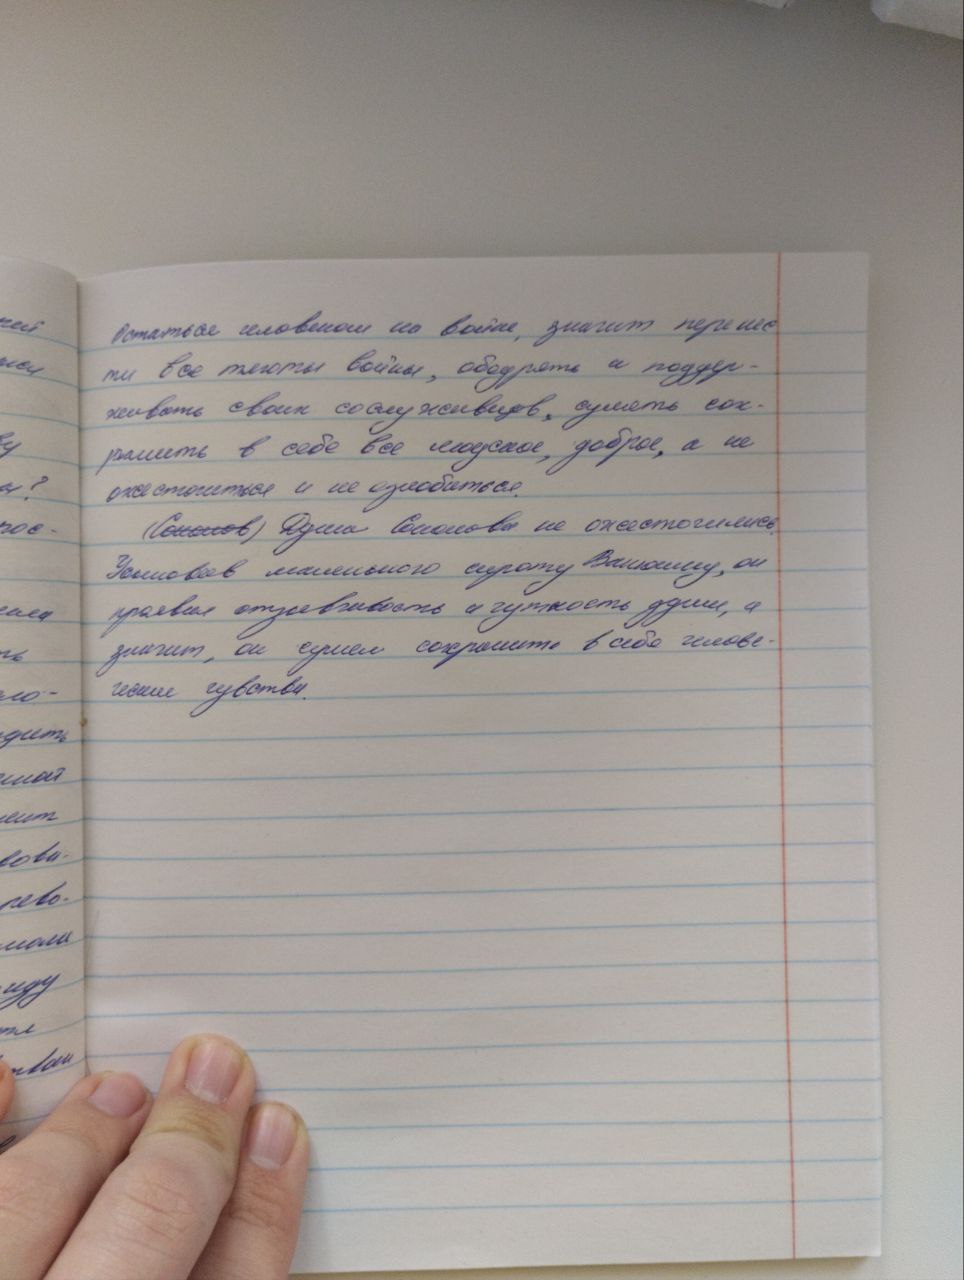 Остаться человеком на войне, значит перенес
ти все тяготы войны, ободрять и поддер-
живать своих сослуживцов, суметь сох-
ранить в себе все людское, доброе, а не
ожесточиться и не озлобиться.
(Соколов) Душа Соколова не ожесточилась.
Усыновив маленького сироту Ванюшку, он
проявил отзывчивость и чуткость души, а
значит, он сумел сохранить в себе челове-
ческие чувства.